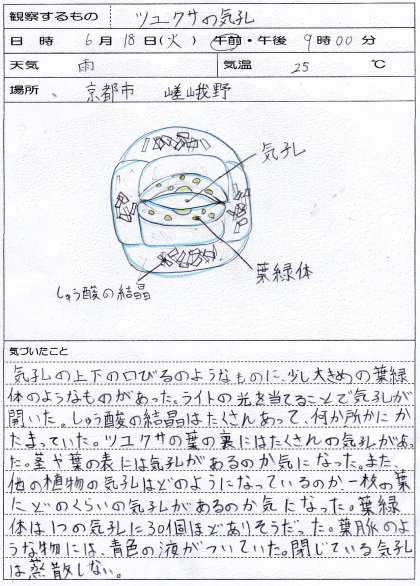 観察するもの ツユクサの気孔
日 時 6月18日(火) 午前・午後 9時00分
天気 雨 気温 25 ℃
場所 京都市 嵯峨野
気孔
葉緑体
しゅう酸の結晶
気づいたこと
気孔の上下の口びるのようなものに、少し大きめの葉緑
体のようなものがあった。ライトの光を当てることで気孔が
開いた。しゅう酸の結晶はたくさんあって、何か所かにか
たまっていた。ツユクサの葉の裏にはたくさんの気孔があっ
た。茎や葉の表には気孔があるのか気になった。また、
他の植物の気孔はどのようになっているのか、一枚の葉
にどのくらいの気孔があるのか気になった。葉緑
体は1つの気孔に30個ほどありそうだった。葉脈のよ
うな物には、青色の液がついていた。閉じている気孔
は蒸散しない。